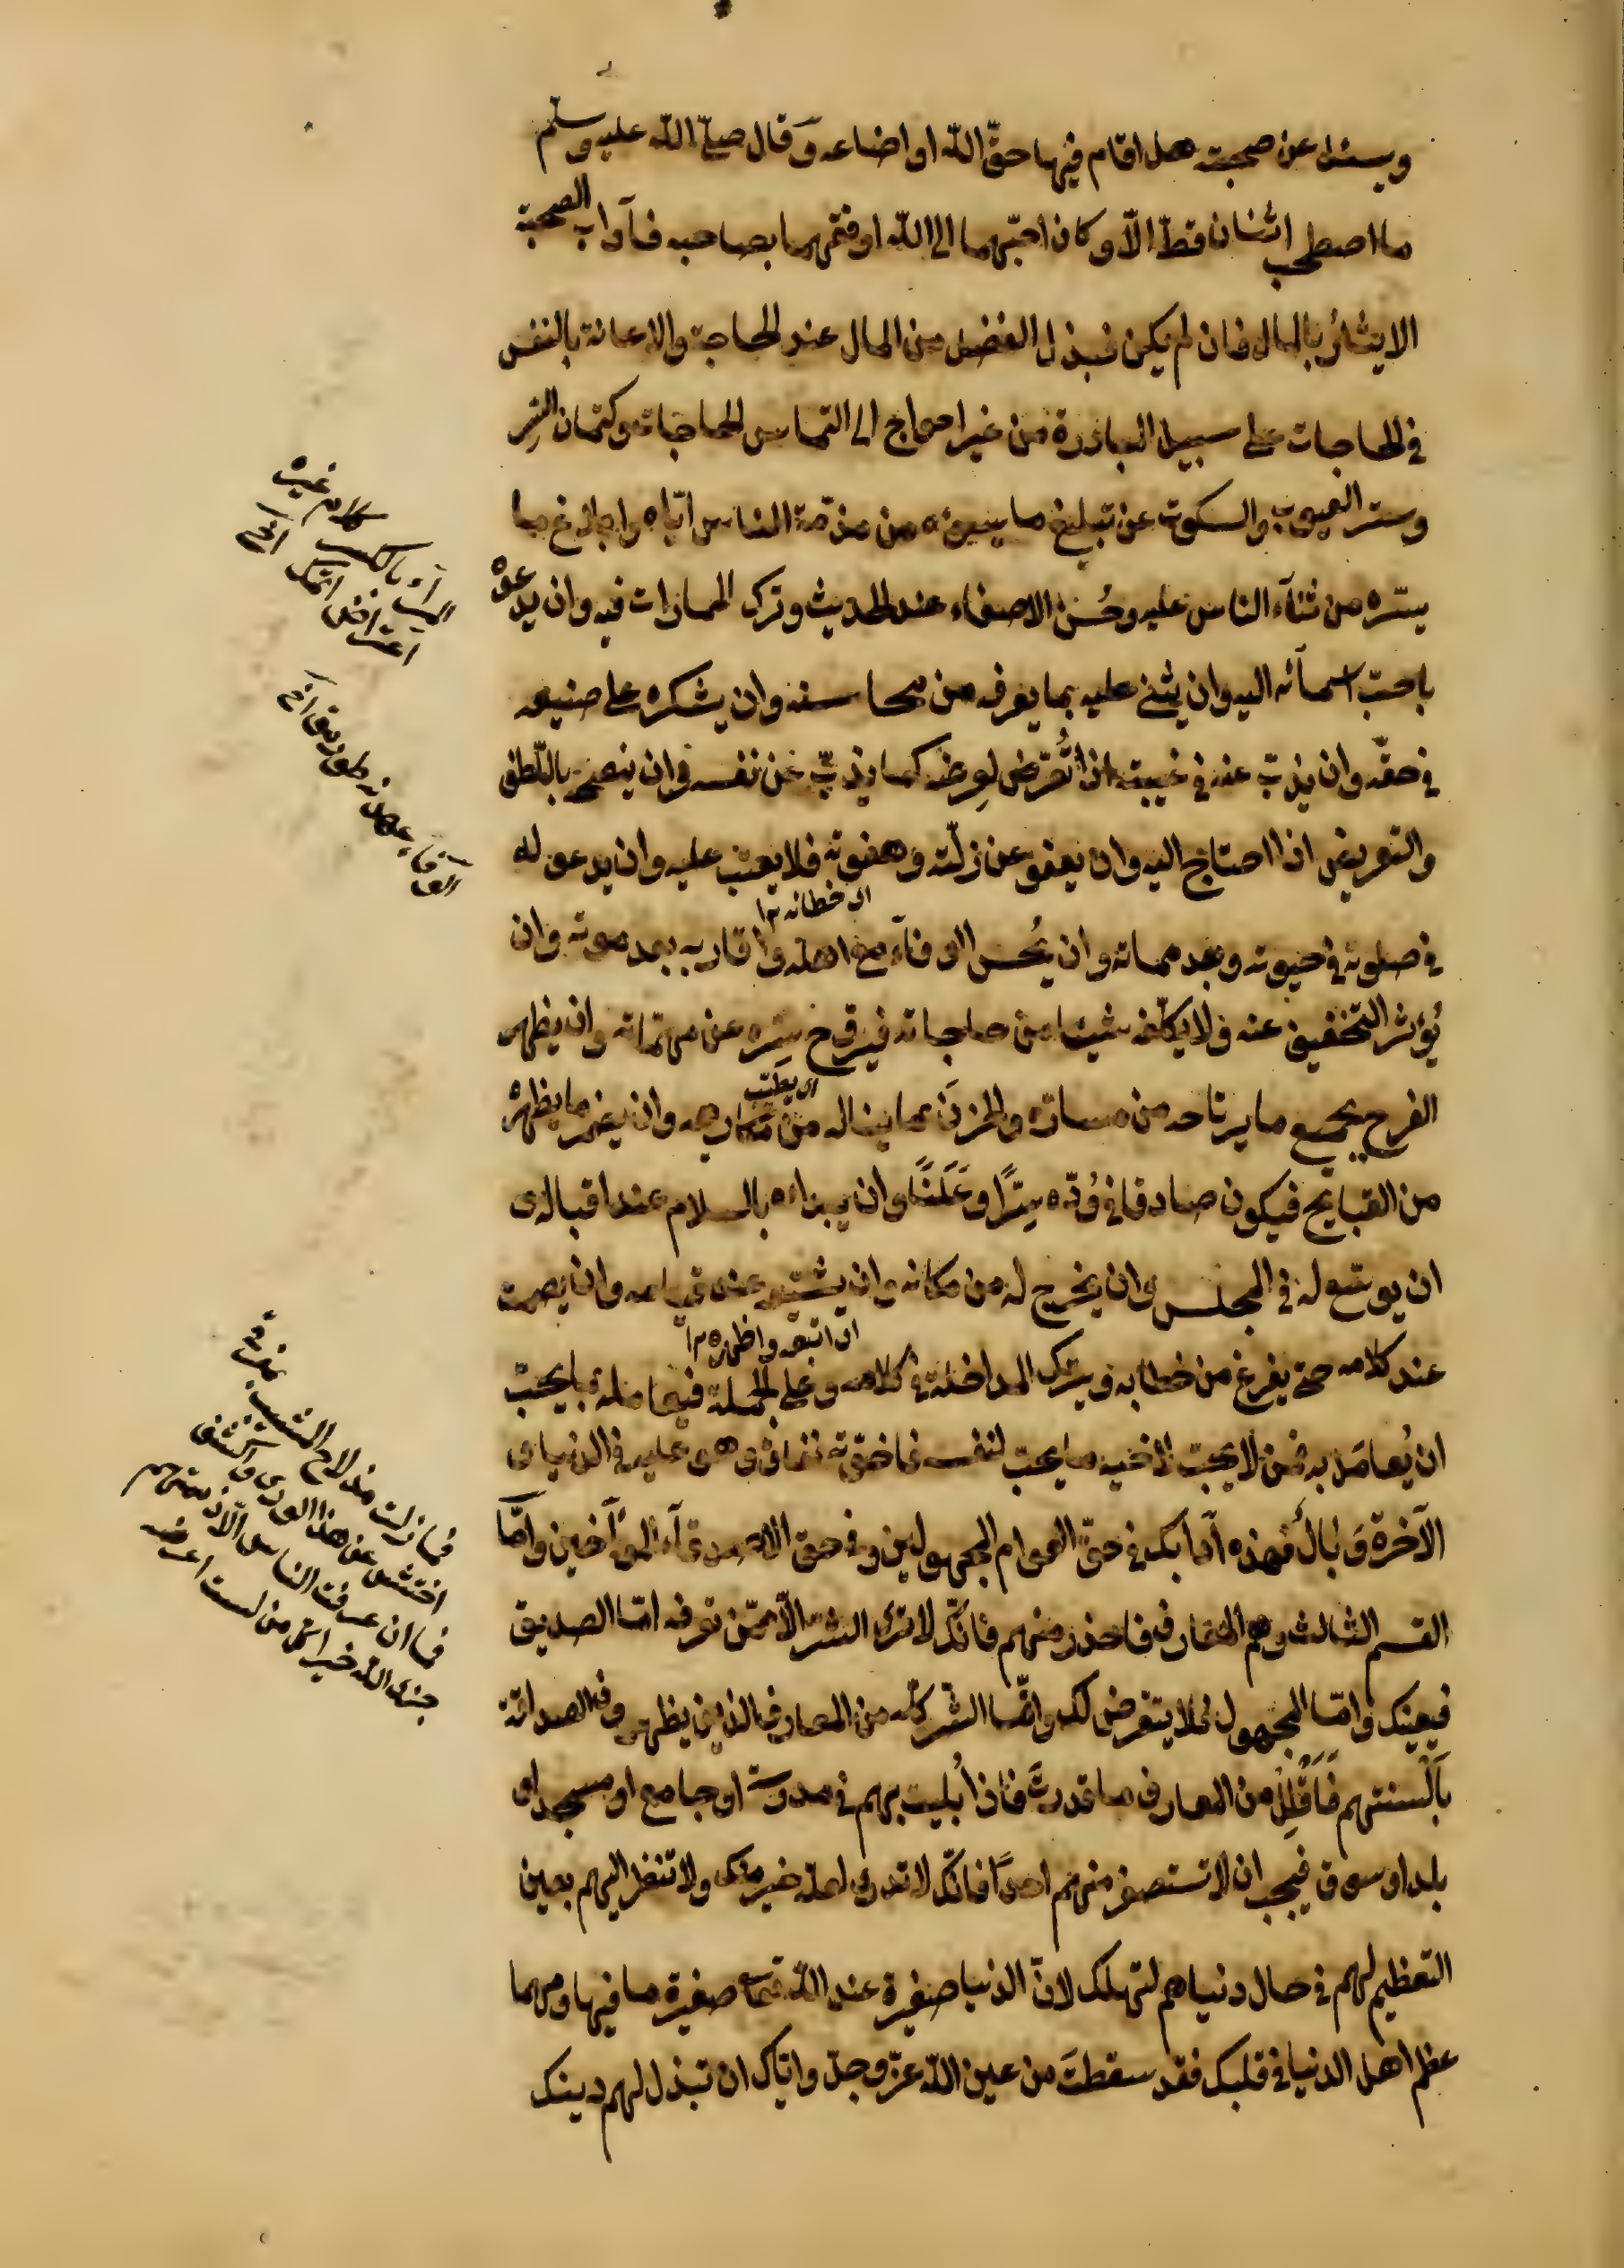 ويسئل عن صحبته هل اقام فيها حقّ اللّه او اضاعه وقال صلّى اللّه عليه وسلّم
ما اصطحب اثنان قطّ الّا وكان احبّهما الى اللّه ارفقهما بصاحبه فآداب الصحبة
الايثار بالمال فان لم يكن فبذل الفضل من المال عند الحاجة والاعانة بالنفس
فى الحاجات على سبيل المبادرة من غير احواج الى التماس الحاجات وكتمان السّر
وستر العيوب والسكوت عن تبليغ ما يسوءه من مذمّة الناس ايّاه وابلاغ ما
يسّره من ثنآء الناس عليه وحُسن الاصغاء عند الحديث وترك الممارات فيه وان يدعوه
باحبّ اسمآئه اليه وان يثنى عليه بما يعرف من محاسنه وان يشكره على صنيعه
فى حقّه وان يذبّ عنه فى غيبته اذا تُعرّض لعِرضه كما يذبّ عن نفسه وان ينصحه باللّطف
والتعريض اذا احتاج اليه وان يعفو عن زلّته وهفوته فلا يعتب عليه وان يدعو له
اى خطائه ١٢
فى صلوته فى حيوته وبعد مماته وان يُحسن الوفآء مع اهله واقاربه بعد موته وان
يُؤثر التخفيف عنه ولا يكلّفه شيئا من حاجاته فيروّح سِرّه عن مهمّاته وان يظهر
اى يطيّب
الفرح بجميع ما يرتاحه من مسارّه والحزن بما يناله من مَكارهه وان يضمر ما يظهره
من القبايح فيكون صادقا فى وُدّه سِرًّا وعَلَنًا وان يبداءه بالسلام عند اقباله و
ان يوسّع له فى المجلس وان يخرج له من مكانه وان يشيّعه عند قيامه وان يصمت
اى اتبعه واظهره ١٢
عند كلامه حتى يفرغ من خطابه ويترك المداخلة فى كلامه وعلى الجملة فيعامله بما يحبّ
ان يُعامَل به فمن لا يحبّ لاخيه ما يحب لنفسه فاخوّته نفاق وهو عليه فى الدنيا و
الآخرة وَبال فهذه آدابك فى حقّ العوام المجهولين وفى حق الاصدقآء المؤآخين وامّا
القسم الثالث وهم المعارف فاحذر منهم فانّك لا ترى الشرّ الّا ممّن تعرفه امّا الصديق
فيعينك وامّا المجهول فلا يتعرض لك وانّما الشّر كلّه من المعارف الذين يظهرون الصداقة
بَاَلْسنتهم فَاَقْلِلْ من المعارف ما قدرتَ فاذا بُليت بهم فى مدرسة او جامع او مسجد او
بلد او سوق فيجب ان لا تستصغر منهم احدًا فانّك لا تدرى لعله خير منك ولا تنظر اليهم بعين
التعظيم لهم فى حال دنياهم لتهلك لانّ الدنيا صغيرة عند اللّه تعالى صغيرة ما فيها ومهما
عظم اهل الدنيا فى قلبك فقد سقطتَ من عين اللّه عزّ وجلّ وايّاك ان تبذل لهم دينك
كلام غيره
فما زلت مذ لاح المشيب بمفرقى
افتش عن هذا الورى واكشف
فما ان عرفت الناس الّا ذممتهم
جزى اللّه خيرا كل من لست اعرف